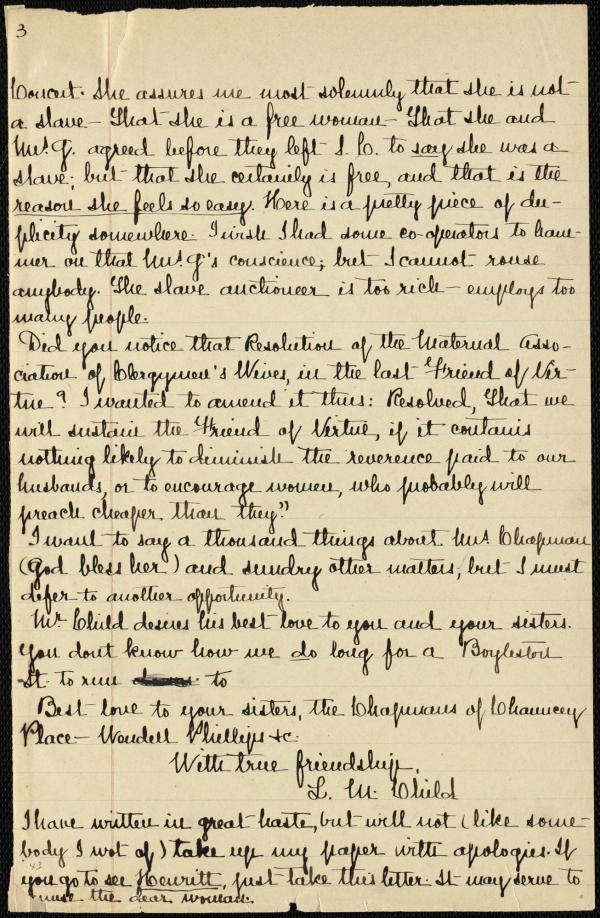 3
Concert. She assures me most solemnly that she is not
a slave – That she is a free woman – That she and
Mrs. G. agreed before they left S. C. to say she was a
slave; but that she certainly is free, and that is the
reason she feels so easy. Here is a pretty piece of du-
plicity somewhere. I wish I had some co-operators to ham-
mer on that Mrs. G's conscience; but I cannot rouse
anybody. The slave auctioneer is too rich – employs too
many people.
Did you notice that Resolution of the Maternal Asso-
ciation of Clergymen's Wives, in the last "Friend of Vir-
tue"? I wanted to amend it thus: Resolved, That we
will sustain the Friend of Virtue, if it contains
nothing likely to diminish the reverence paid to our
husbands, or to encourage women, who probably will
preach cheaper than they."
I want to say a thousand things about Mrs. Chapman
(God bless her) and sundry other matters; but I must
defer to another opportunity.
Mr. Child desires his best love to you and your sisters.
You don't know how we do long for a Boylston
St. to run to
Best love to your sisters, the Chapmans of Chauncey
Place – Wendell Phillips &c.
With true friendship,
L. M. Child
I have written in great haste, but will not (like some-
body I wot of) take up my paper with apologies. If
you go to see Hewritt, just take this letter. It may serve to
the dear woman.